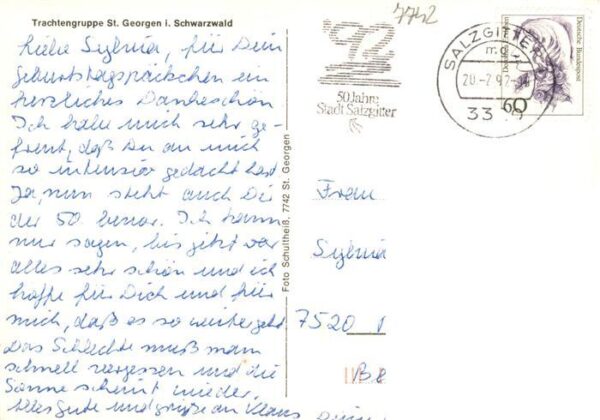 Trachtengruppe St. Georgen i. Schwarzwald
Liebe Sylvia, für Dein
Geburtstagspäckchen ein
herzliches Dankeschön
Ich habe mich sehr ge-
freut, daß Du an mich
so intensiv gedacht hast
Ja, nun steht auch Dir
der 50 bevor. Ich kann
nur sagen, bis jetzt war
alles sehr schön und ich
hoffe für Dich und für
mich, daß es so weitergeht
das Schlechte muß man
schnell vergessen und die
Sonne scheint wieder.
Alles Gute und grüße an Klaus
Foto Schultheiß, 7742 St. Georgen
7742
'92
50 Jahre
Stadt Salzgitter
SALZGITTER
20.-7.92
33
Deutsche Bundespost
60
Frau
Sylvia
7520